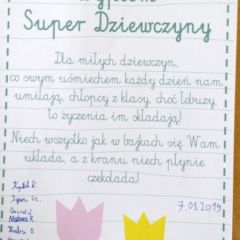 Super Dziewczyny
Dla miłych dziewczyn,
co swym uśmiechem każdy dzień nam
umilają, chłopcy z klasy, choć łobuzy,
to życzenia im składają!
Niech wszystko jak w bajkach się Wam
układa, a z kranu niech płynie
czekolada!
7.03.2014